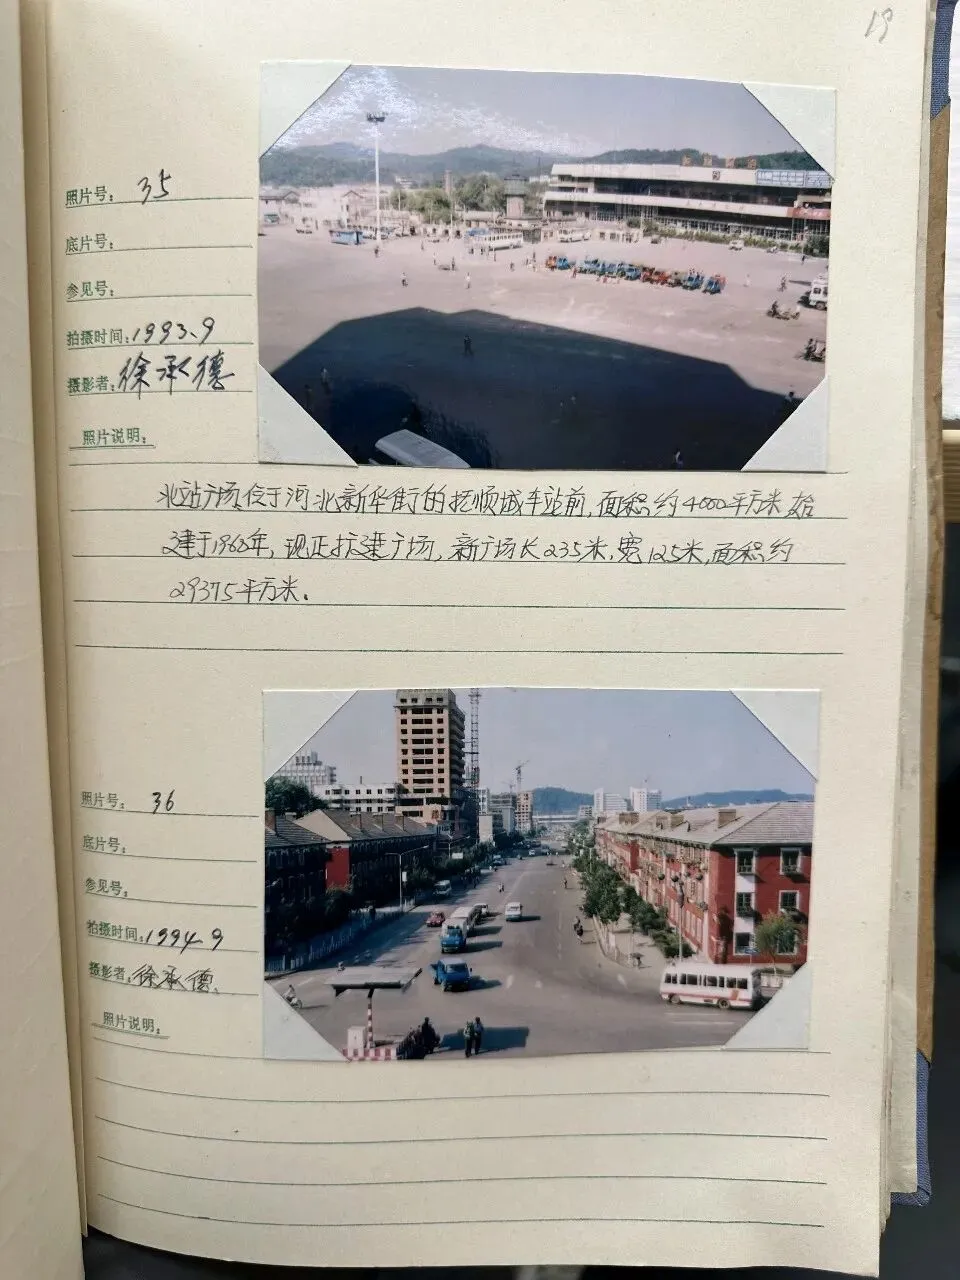 19
照片号: 35
底片号:
参见号:
拍摄时间: 1993.9
摄影者: 徐承德
照片说明:
北站广场位于河北新华街的抚顺城车站前,面积约4000平方米,始
建于1963年,现正扩建广场,新广场长235米,宽125米,面积约
29375平方米.
照片号: 36
底片号:
参见号:
拍摄时间: 1994.9
摄影者: 徐承德
照片说明: